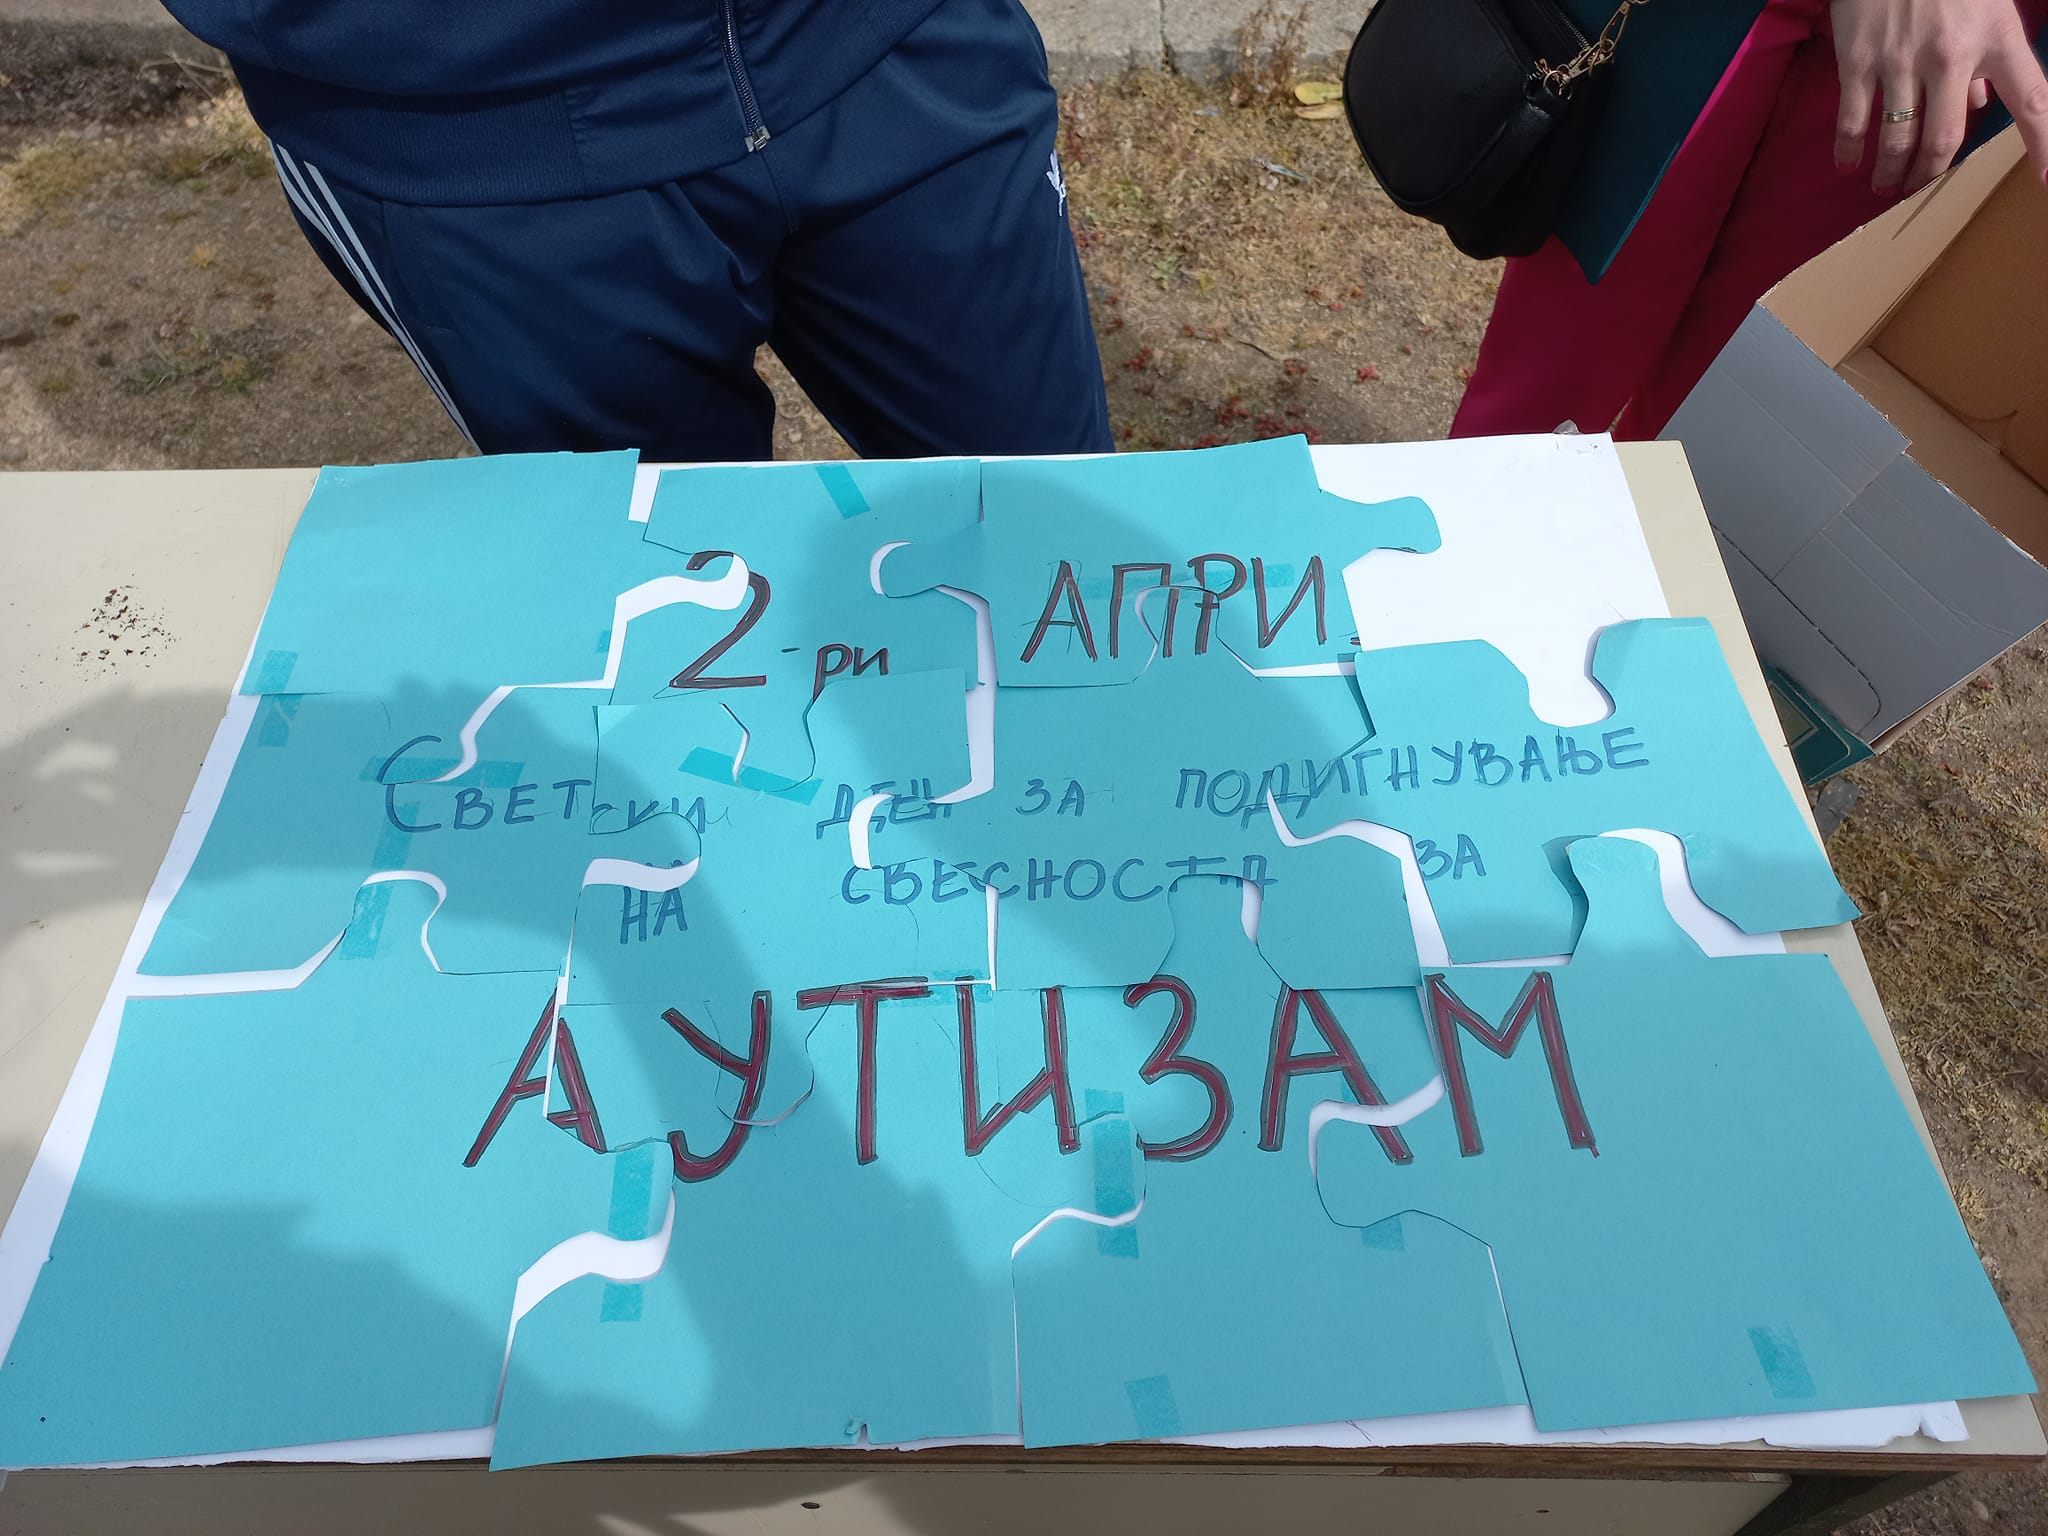 2-ри АПРИ
СВЕТСКИ ДЕН ЗА ПОДИГНУВАЊЕ
НА СВЕСНОСТА ЗА
АУТИЗАМ